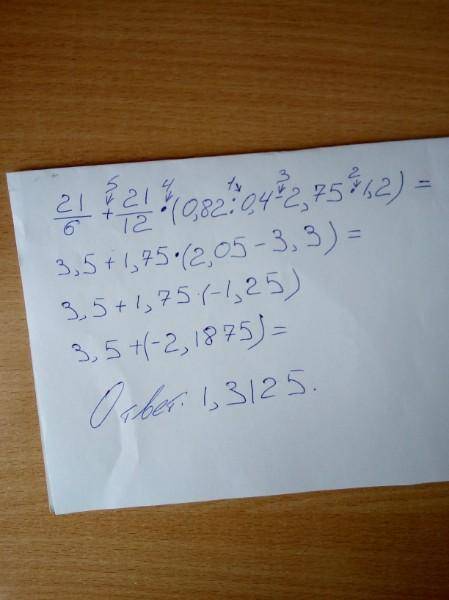 5 4 1 3 2
21/6 + 21/12 · (0,82 : 0,4 - 2,75 · 1,2) =
3,5 + 1,75 · (2,05 - 3,3) =
3,5 + 1,75 · (-1,25)
3,5 + (-2,1875) =
Ответ. 1,3125.